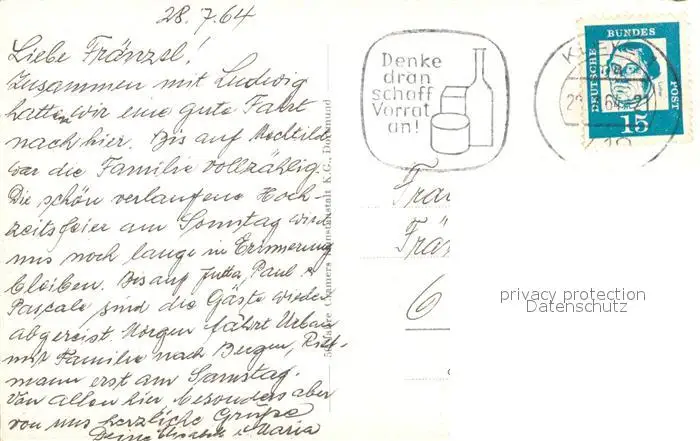 28.7.64
Liebe Fränzel!
Zusammen mit Ludwig
hatten wir eine gute Fahrt
nach hier. Bis auf Mechtild
war die Familie vollzählig.
Die schön verlaufene Hoch-
zeitsfeier am Sonntag wird
uns noch lange in Erinnerung
bleiben. Bis auf Jutta, Paul &
Pascale sind die Gäste wieder
abgereist. Morgen fährt Urban
mit Familie nach Bergen,
mann erst am Samstag.
Von allen hier besonders aber
von uns herzliche Grüße
Deine Maria
Cramers Kunstanstalt K.G., Dortmund
Denke
dran
schaff
Vorrat
an!
DEUTSCHE
BUNDES
POST
15
Frä
6
privacy protection
Datenschutz